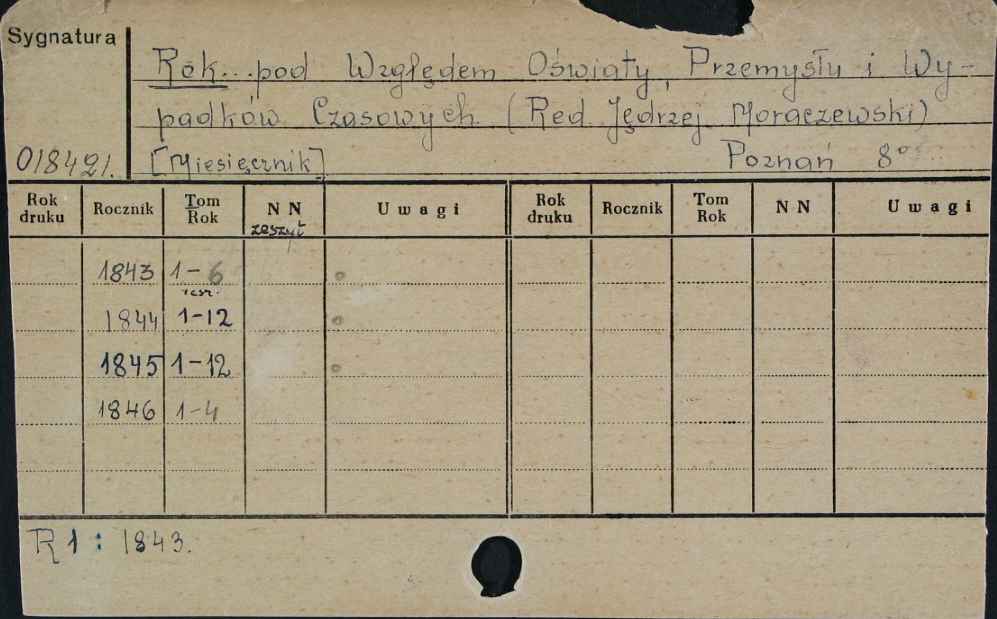 Sygnatura
Rok...pod Względem Oświaty, Przemysłu i Wy-
padków Czasowych (Red. Jędrzej Moraczewski)
018421. [Miesięcznik] Poznań 8°
Rok druku Rocznik Tom Rok N N Uwagi Rok druku Rocznik Tom Rok N N Uwagi
zeszyt
1843 1-6
1844 1-12
1845 1-12
1846 1-4
R 1 : 1843.